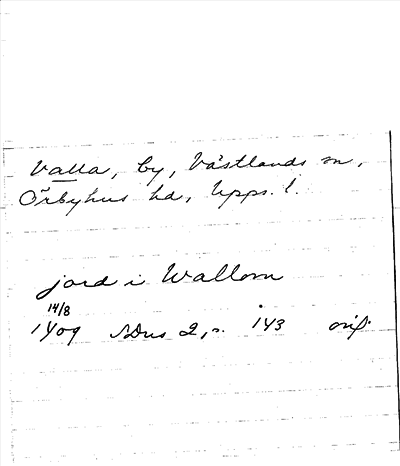 Valla, by, Västlands sn,
Örbyhus hd, Upps. l.
jord i Wallom
14/8
1409 SDns 2, s. 143 orig.